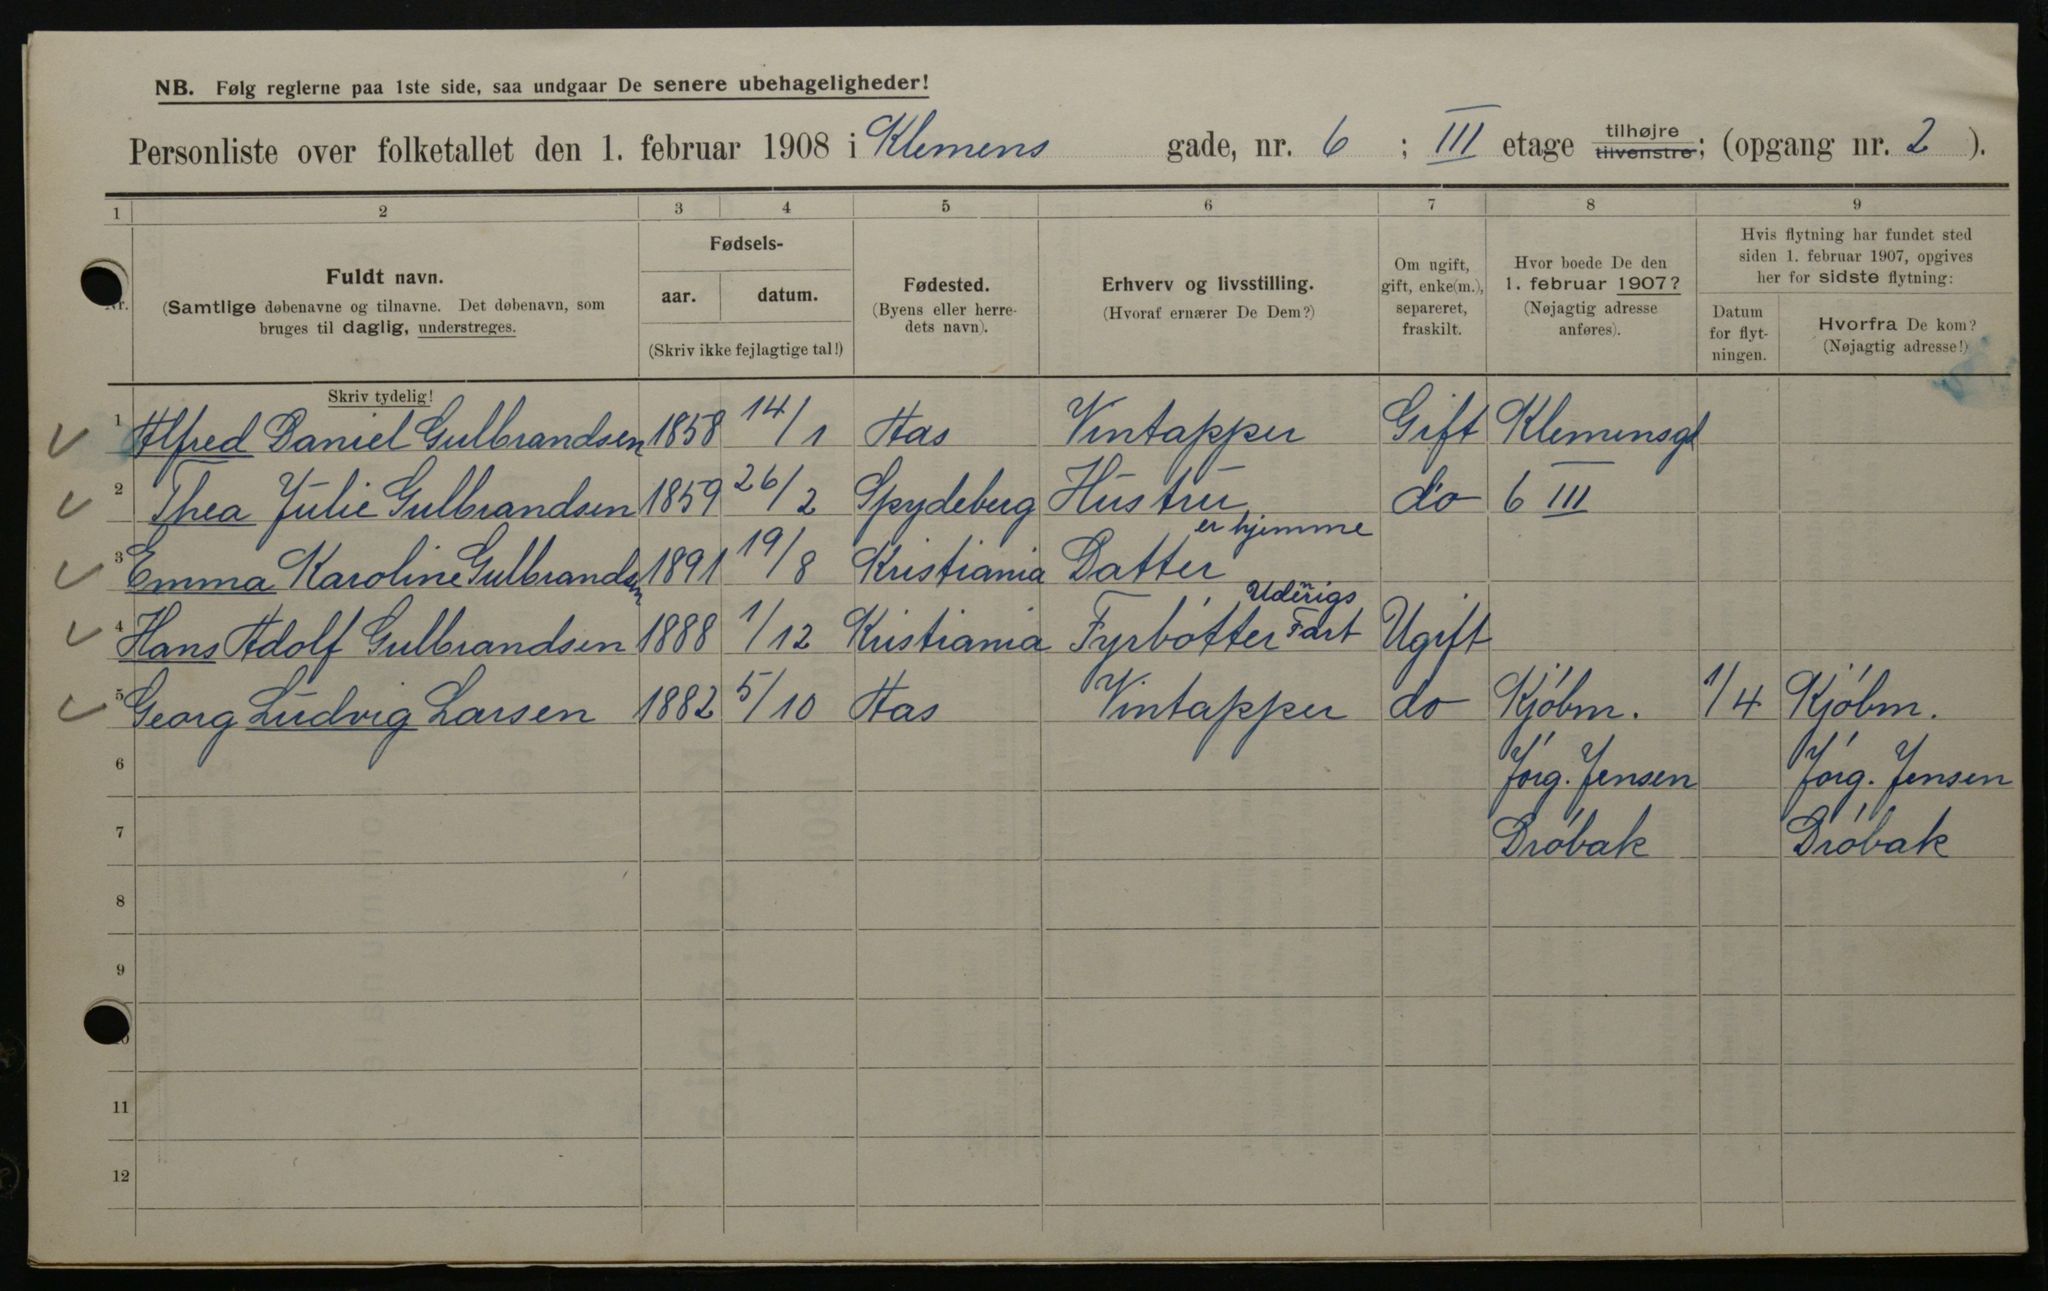 NB. Følg reglerne paa 1ste side, saa undgaar De senere ubehageligheder!
Personliste over folketallet den 1. februar 1908 i Klemens gade, nr. 6 ; III etage tilhøjre tilvenstre; (opgang nr. 2 ).
1 2 3 4 5 6 7 8 9
Nr.
Fuldt navn.
(Samtlige døbenavne og tilnavne. Det døbenavn, som
bruges til daglig, understreges.
Skriv tydelig!
Fødsels-
aar. datum.
(Skriv ikke fejlagtige tal!)
Fødested.
(Byens eller herre-
dets navn).
Erhverv og livsstilling.
(Hvoraf ernærer De Dem?)
Om ugift,
gift, enke(m.),
separeret,
fraskilt.
Hvor boede De den
1. februar 1907?
(Nøjagtig adresse
anføres).
Hvis flytning har fundet sted
siden 1. februar 1907, opgives
her for sidste flytning:
Datum
for flyt-
ningen.
Hvorfra De kom?
(Nøjagtig adresse!)
1 Alfred Daniel Gulbrandsen 1858 14/1 Aas Vintapper Gift Klemensgd
2 Thea Julie Gulbrandsen 1859 26/2 Spydeberg Hustru do 6 III
er hjemme
3 Emma Karoline Gulbrandsen 1891 19/8 Kristiania Datter
Udenrigs
4 Hans Adolf Gulbrandsen 1888 1/12 Kristiania Fyrbøtter Fart Ugift
5 Georg Ludvig Larsen 1882 5/10 Aas Vintapper do Kjøbm. 1/4 Kjøbm.
6 Jørg. Jensen Jørg. Jensen
7 Drøbak Drøbak
8
9
10
11
12